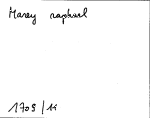 Marey raphael
1709 / 11